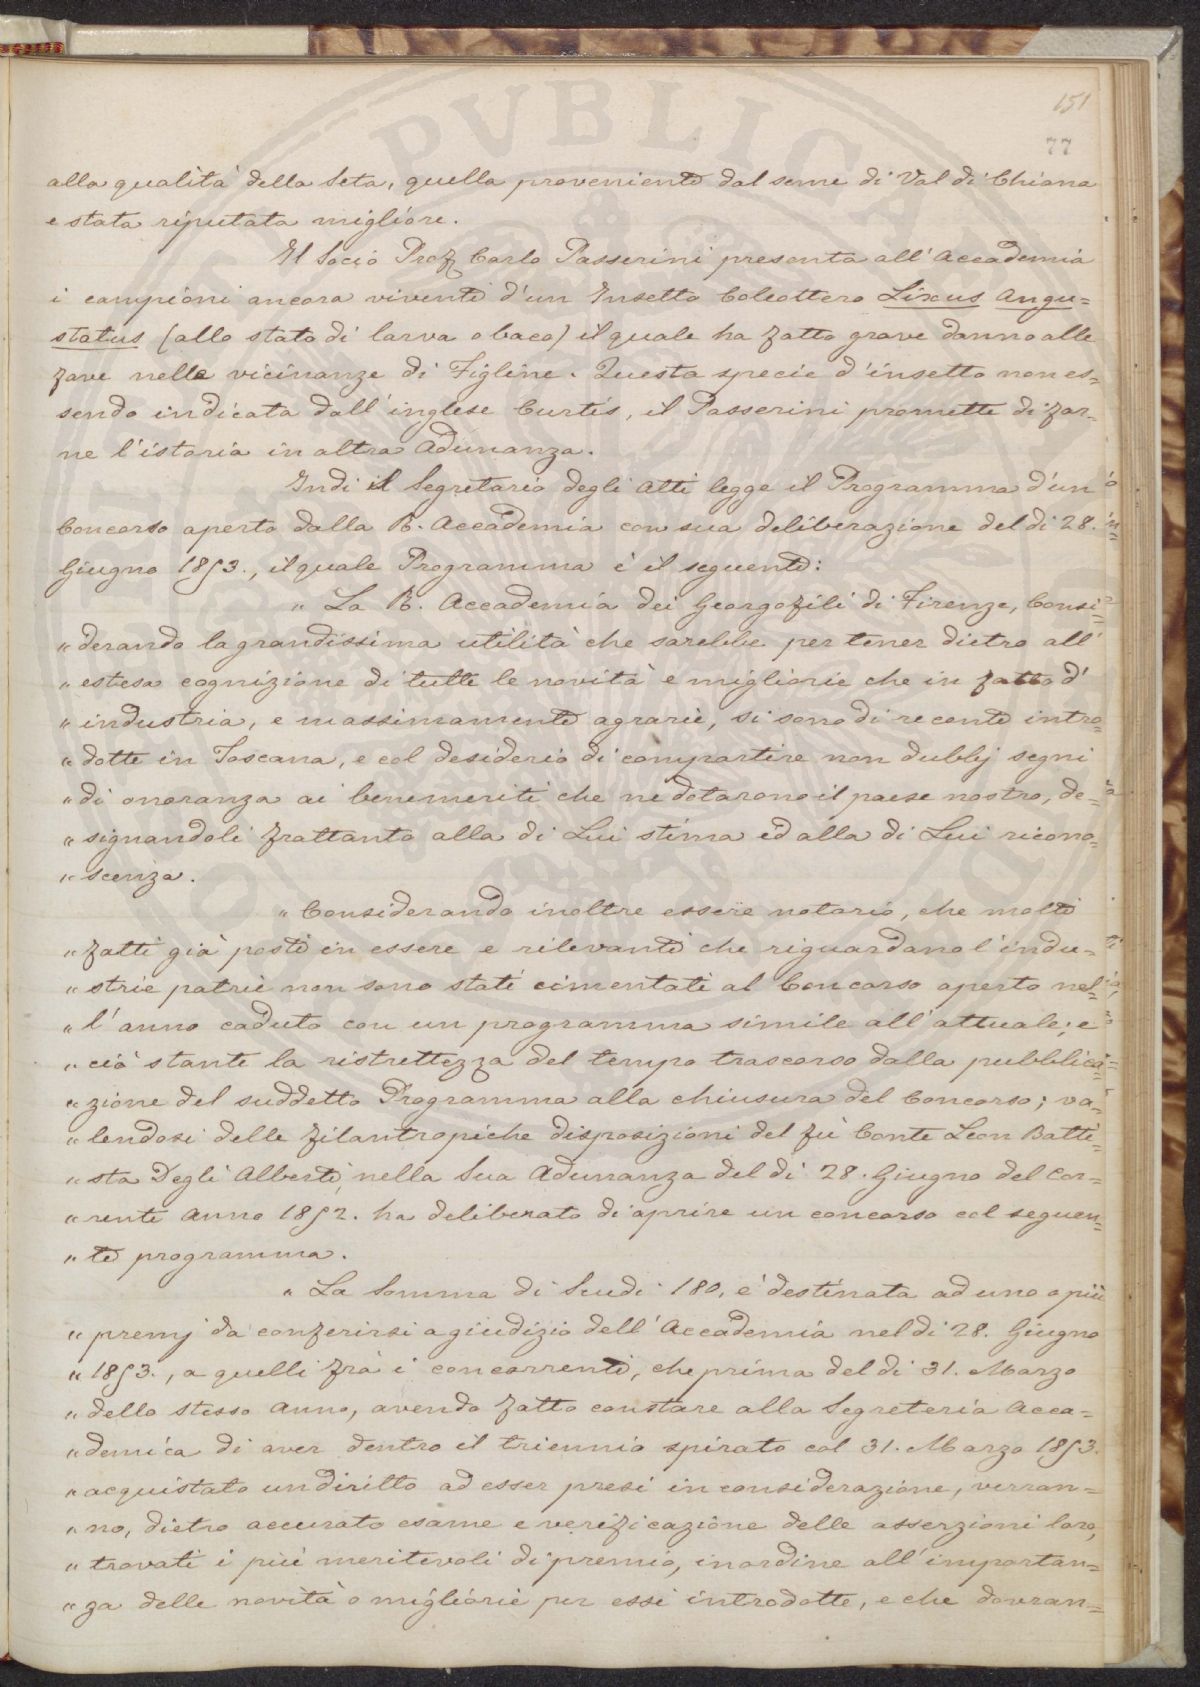 151
77
alla qualità della Seta, quella proveniente dal seme di Val di Chiana
e stata riputata migliore.
Il Socio Prof Carlo Passerini presenta all'Accademia
i campioni ancora viventi d'un Insetto Coleottero Lixus Angu=
status (allo stato di larva o baco) il quale ha fatto grave danno alle
fave nelle vicinanze di Figline. Questa specie d'insetto non es=
sendo indicata dall'inglese Curtis, il Passerini promette di far=
ne l'istoria in altra Adunanza.
Indi il Segretario degli Atti legge il Programma d'un
Concorso aperto dalla R. Accademia con sua deliberazione del dì 28.
Giugno 1853., il quale Programma è il seguente:
" La R. Accademia dei Georgofili di Firenze, Consi=
" derando la grandissima utilità che sarebbe per tener dietro all'
" estesa cognizione di tutte le novità e migliorie che in fatto d'
" industria, e massimamente agrarie, si sono di recente intro=
" dotte in Toscana, e col desiderio di compartire non dubbj segni
" di onoranza ai benemeriti che ne dotarono il paese nostro, de=
" signandoli frattanto alla di Lui stima ed alla di Lui ricono=
" scenza.
" Considerando inoltre essere notorio, che molti
" fatti già posti in essere e rilevanti che riguardano l'indu=
" strie patrie non sono stati cimentati al Concorso aperto nel=
" l'anno caduto con un programma simile all'attuale; e
" ciò stante la ristrettezza del tempo trascorso dalla pubblica=
" zione del suddetto Programma alla chiusura del Concorso; va=
" lendosi delle filantropiche disposizioni del fù Conte Leon Batti=
" sta Degli Alberti, nella Sua Adunanza del dì 28. Giugno del Cor=
" rente Anno 1852. ha deliberato di aprire un concorso col seguen=
" te programma.
" La Somma di Scudi 180, è destinata ad uno o più
" premj da conferirsi a giudizio dell'Accademia nel dì 28. Giugno
" 1853., a quelli frà i concorrenti, che prima del dì 31. Marzo
" dello stesso Anno, avendo fatto constare alla Segreteria Acca=
" demica di aver dentro il triennio spirato col 31. Marzo 1853.
" acquistato un diritto ad esser presi in considerazione, verran=
" no, dietro accurato esame e verificazione delle asserzioni loro,
" trovati i più meritevoli di premio, in ordine all'importan=
" za delle novità o migliorie per essi introdotte, e che dovran=